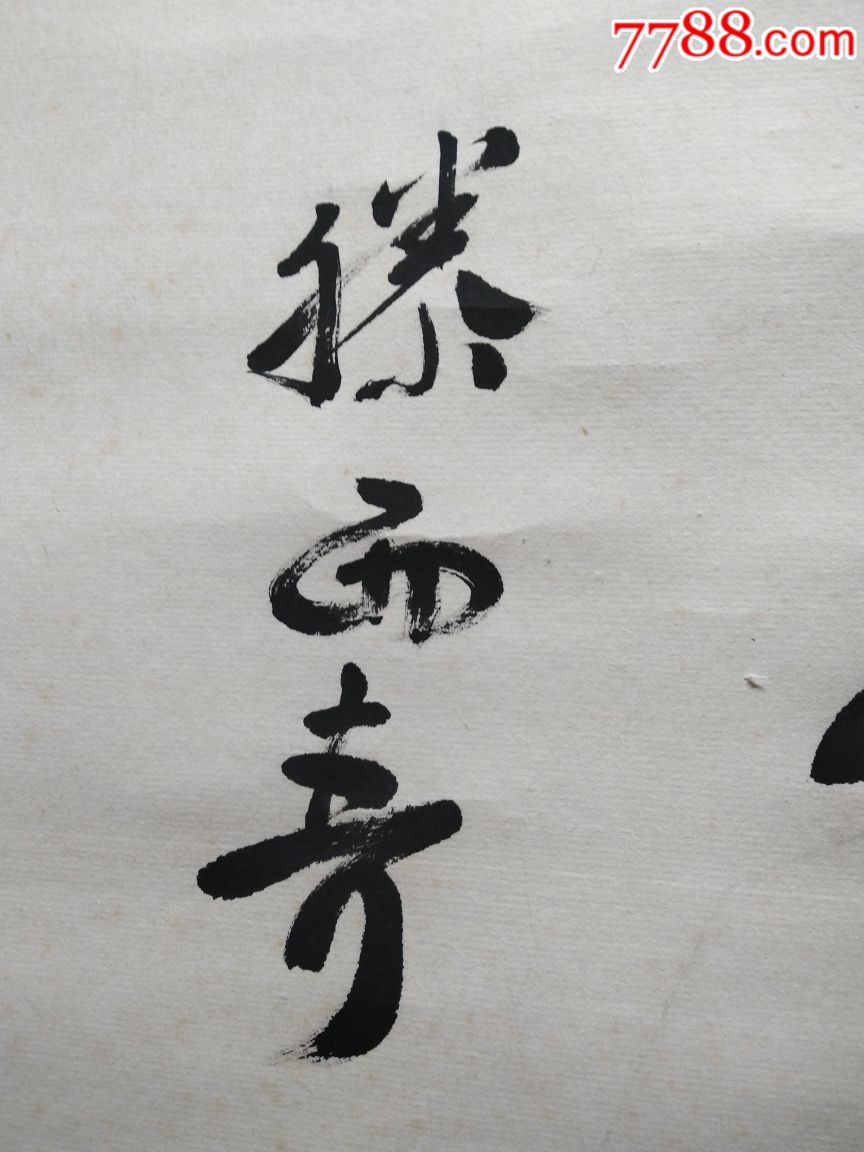 7788.com
滕西奇